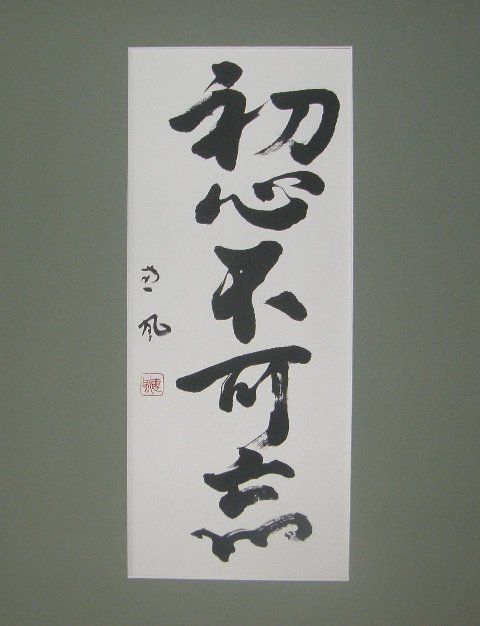 初心不可忘